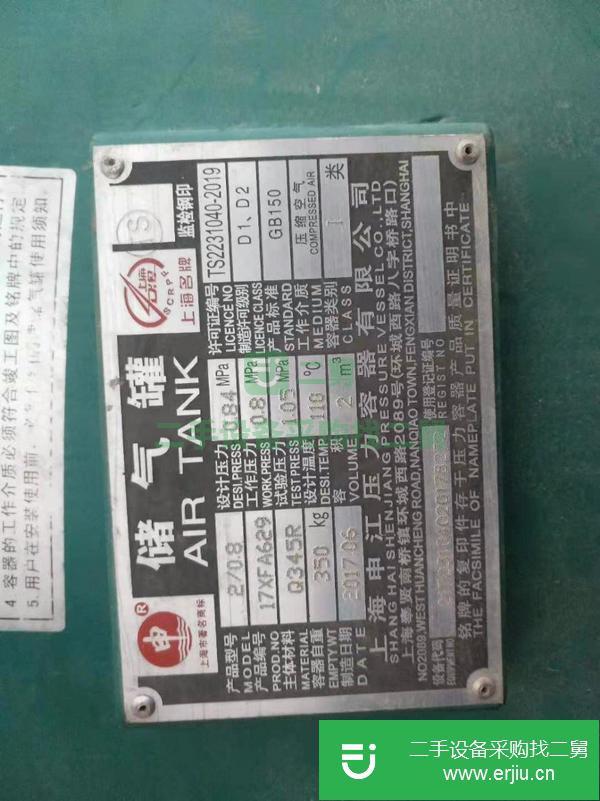 4 容器的工作介质必须符合竣工图及铭牌中的规定
5.用户在安装使用前
气罐使用须知
申
R
上海市著名商标
储气罐
AIR TANK
上海名牌
SCRPP
TS
监检钢印
产品型号
MODEL
2/0.8
产品编号
PROD.NO
17XFA629
主体材料
MATERIAL
Q345R
容器自重
EMPTY WT
350 kg
制造日期
DATE
2017.06
设计压力
DESI.PRESS
0.84 MPa
工作压力
WORK.PRESS
0.8 MPa
试验压力
TEST PRESS
1.05 MPa
设计温度
DESI.TEMP.
110 ℃
容积
VOLUME
2 m³
许可证编号
LICENCE NO
TS2231040-2019
制造许可级别
LICENCE CLASS
D1、D2
产品标准
STANDARD
GB150
工作介质
MEDIUM
压缩空气
COMPRESSED AIR
容器类别
CLASS
I 类
上海申江压力容器有限公司
SHANGHAI SHENJIANG PRESSURE VESSEL CO.,LTD
上海奉贤南桥镇环城西路2089号(环城西路八字桥路口)
NO2089,WEST HUANCHENG ROAD,NANQIAO TOWN,FENGXIAN DISTRICT,SHANGHAI
设备代码
使用登记证编号
REGIST NO
铭牌的复印件存于压力容器产品质量证明书中
THE FACSIMILE OF NAMEPLATE PUT IN CERTIFICATE
二手设备采购找二舅
www.erjiu.cn